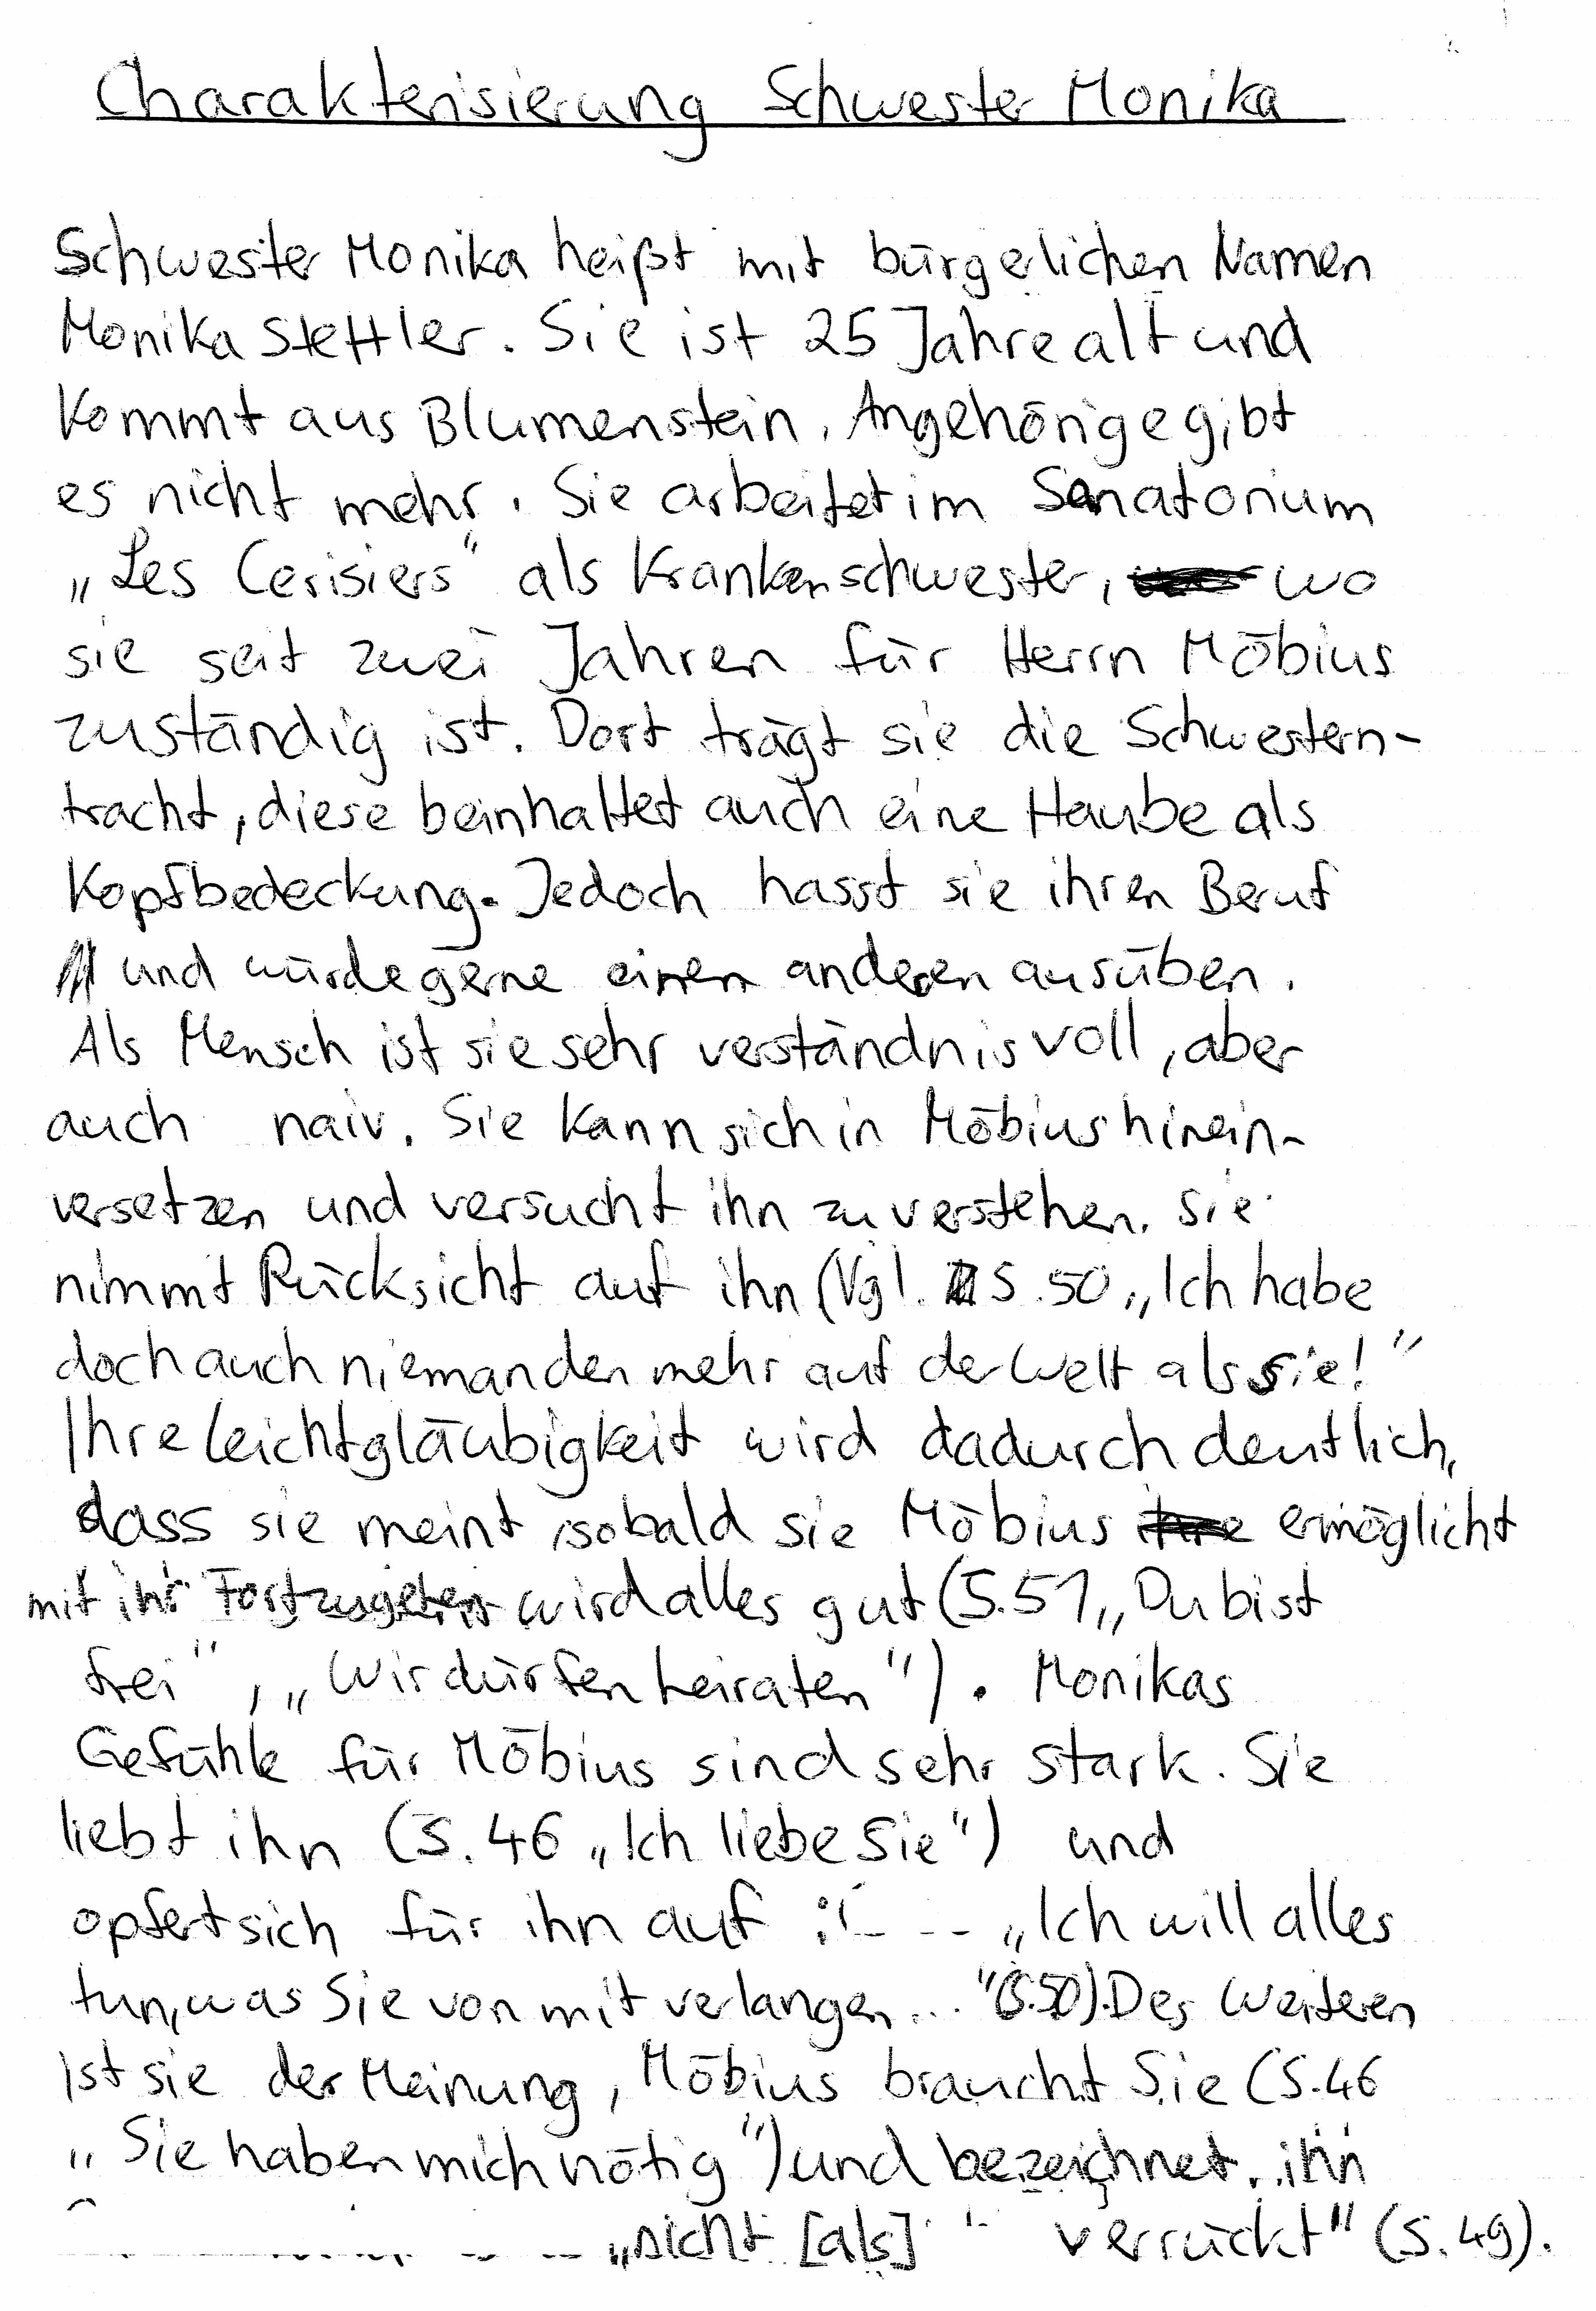 Charakterisierung Schwester Monika
Schwester Monika heißt mit bürgerlichen Namen
Monika Stettler. Sie ist 25 Jahre alt und
kommt aus Blumenstein. Angehörige gibt
es nicht mehr. Sie arbeitet im Sanatorium
„Les Cerisiers" als Krankenschwester, wo
sie seit zwei Jahren für Herrn Möbius
zuständig ist. Dort trägt sie die Schwestern-
tracht, diese beinhaltet auch eine Haube als
Kopfbedeckung. Jedoch hasst sie ihren Beruf
und würde gerne einen anderen ausüben.
Als Mensch ist sie sehr verständnisvoll, aber
auch naiv. Sie kann sich in Möbius hinein-
versetzen und versucht ihn zu verstehen. Sie
nimmt Rücksicht auf ihn (Vgl. S. 50 „Ich habe
doch auch niemanden mehr auf der Welt als sie!"
Ihre Leichtgläubigkeit wird dadurch deutlich,
dass sie meint, sobald sie Möbius ermöglicht
mit ihr Fortzugehen wird alles gut (S. 51 „Du bist
frei", „Wir dürfen heiraten"). Monikas
Gefühle für Möbius sind sehr stark. Sie
liebt ihn (S. 46 „Ich liebe Sie") und
opfert sich für ihn auf : „Ich will alles
tun, was Sie von mit verlangen..." (S. 50). Des Weiteren
ist sie der Meinung, Möbius braucht Sie (S. 46
„Sie haben mich nötig") und bezeichnet ihn
„nicht [als] verrückt" (S. 49).